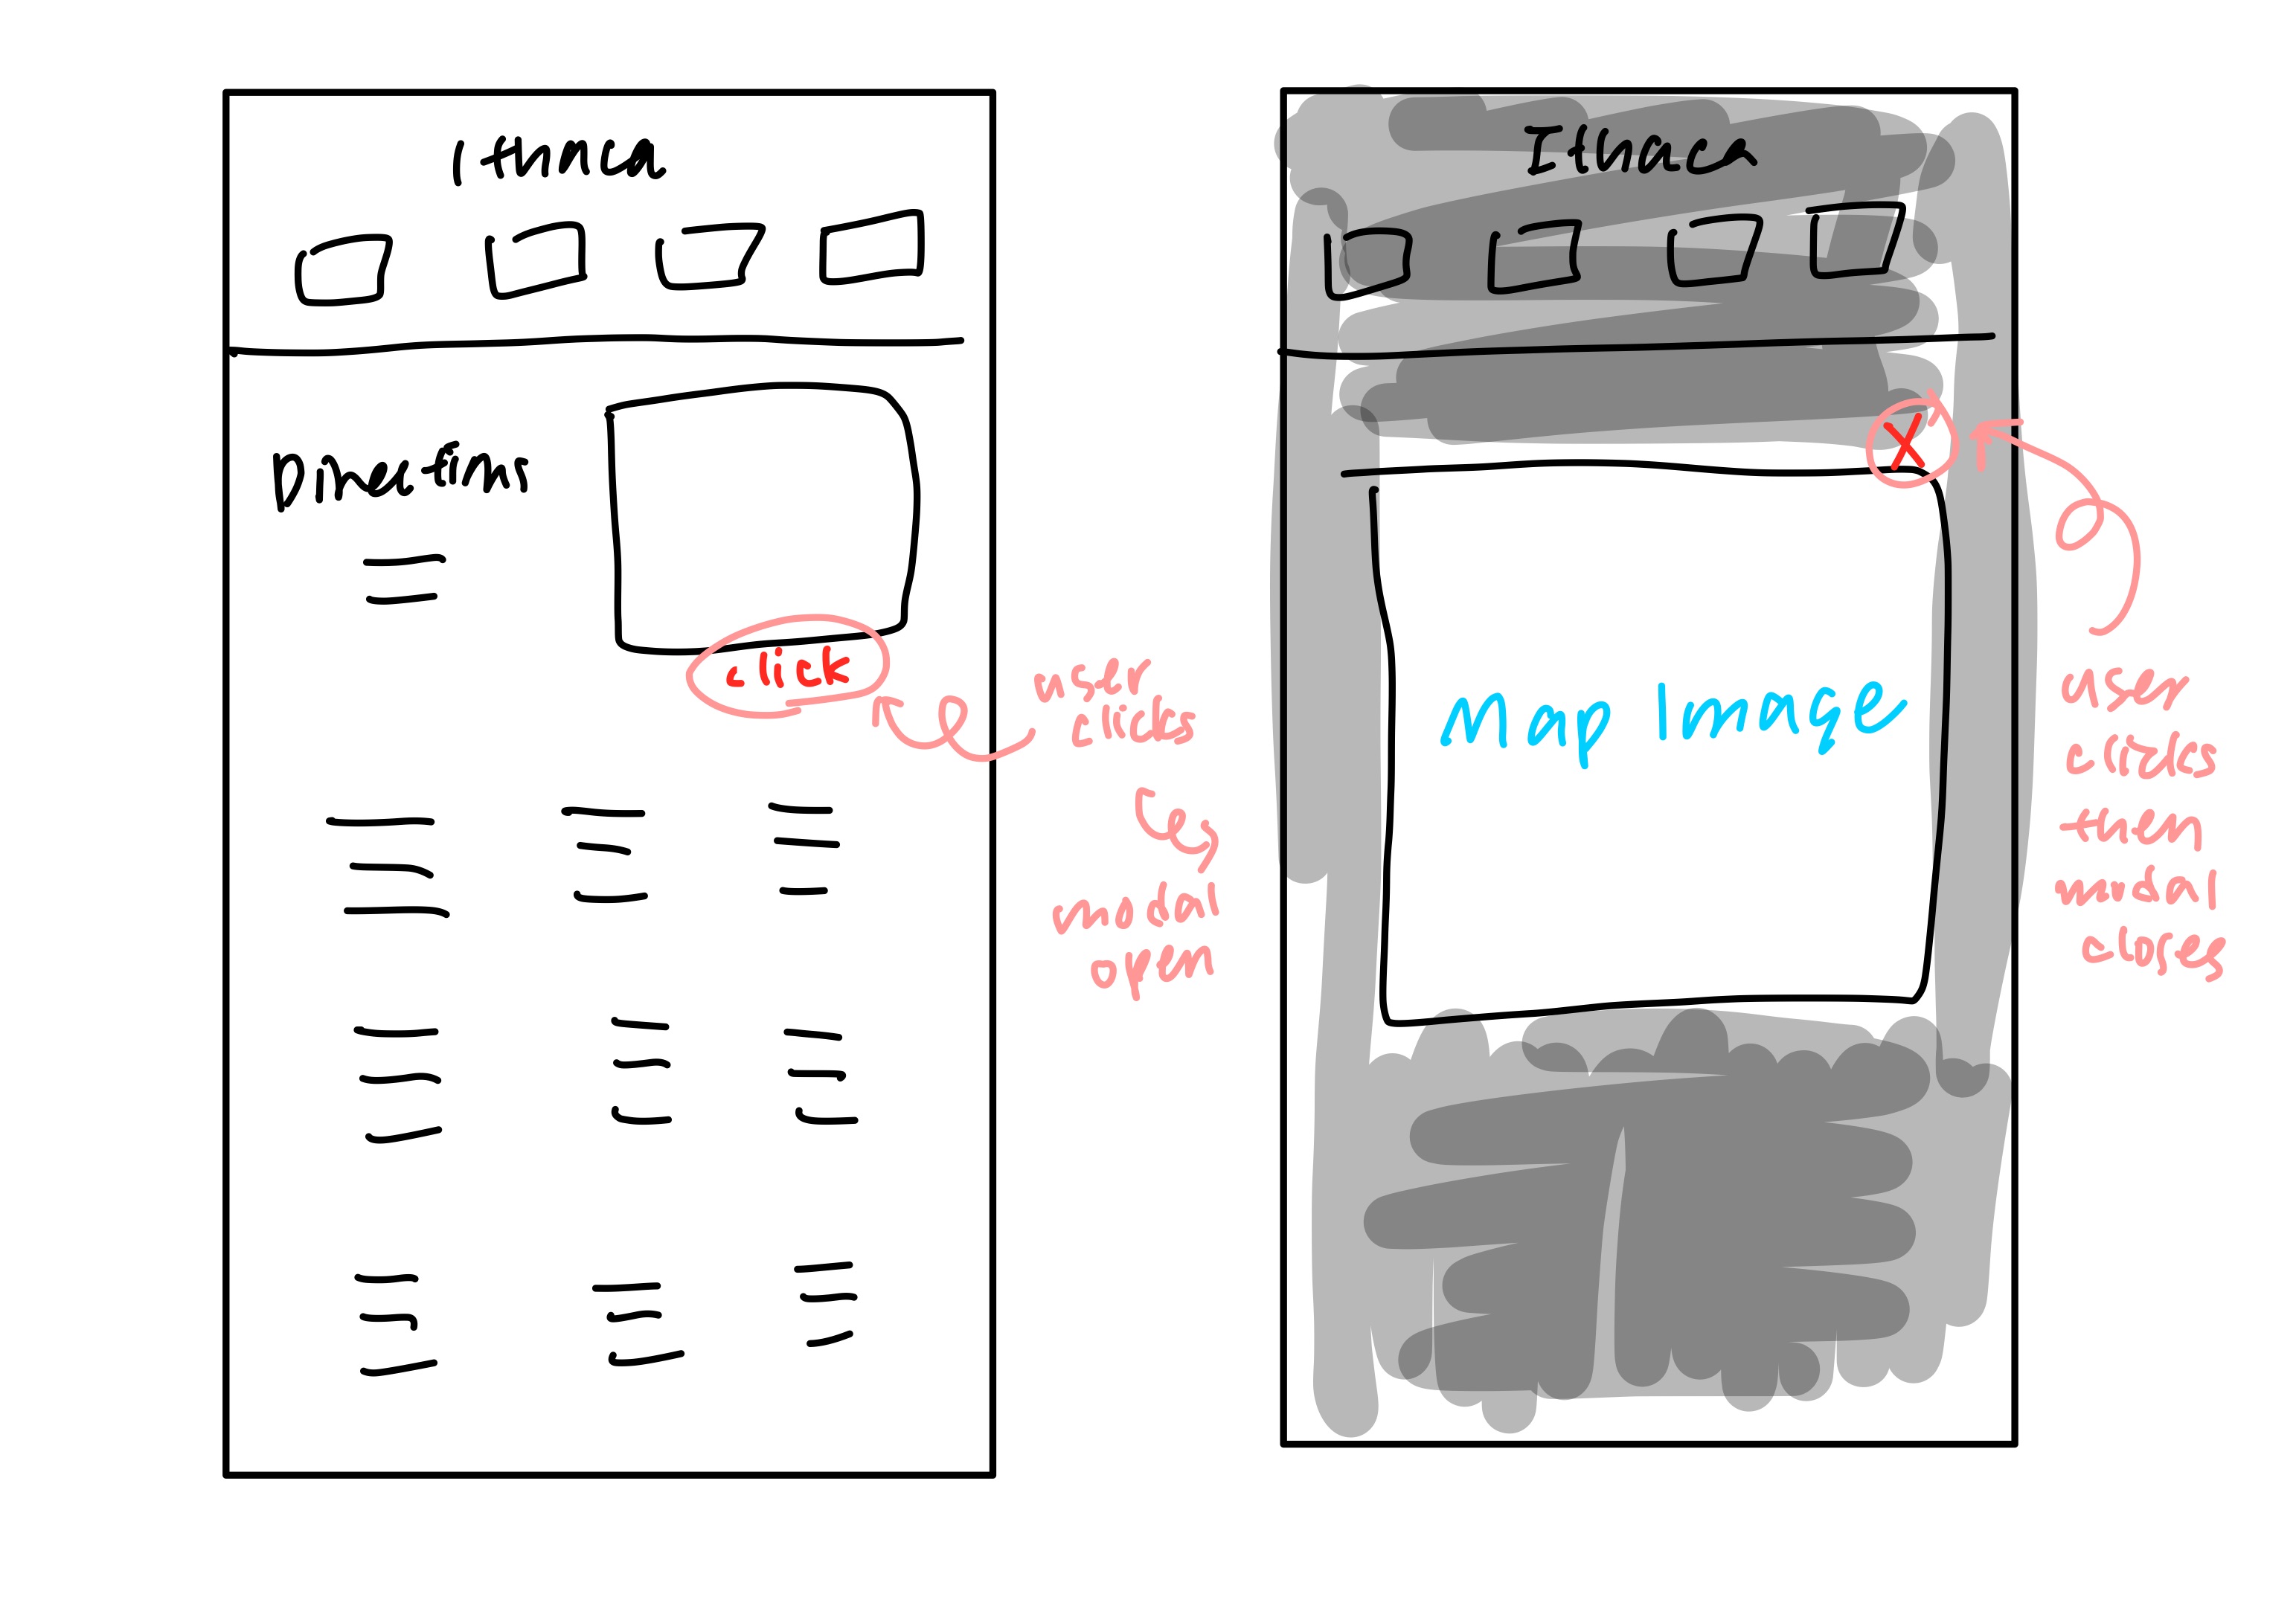 Ithaca
Directions
click
user
clicks
modal
open
Ithaca
X
Map Image
user
clicks
then
modal
closes